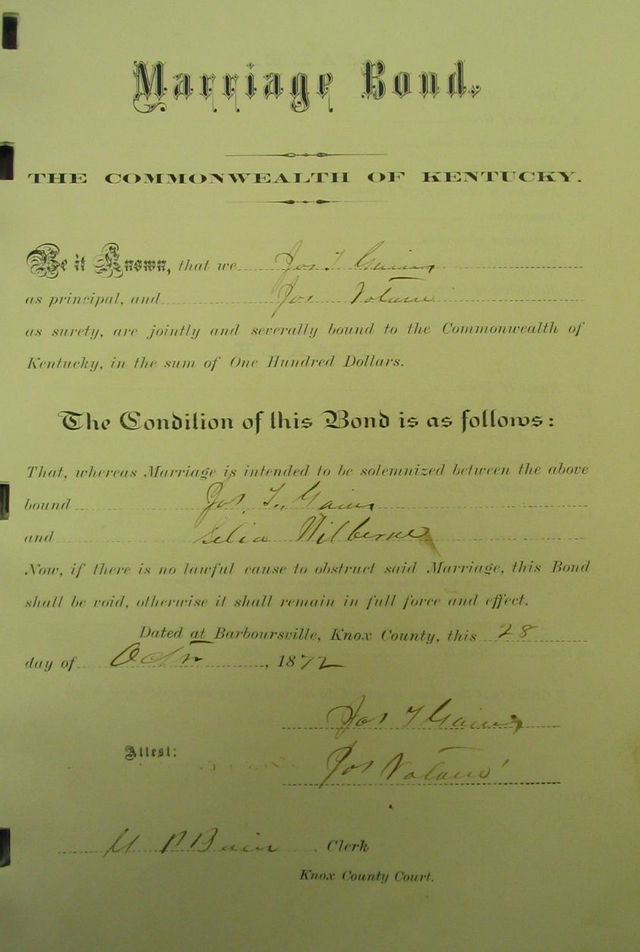 Marriage Bond.
THE COMMONWEALTH OF KENTUCKY.
Be it Known, that we Jos T Gains
as principal, and Jos
as surety, are jointly and severally bound to the Commonwealth of
Kentucky, in the sum of One Hundred Dollars.
The Condition of this Bond is as follows:
That, whereas Marriage is intended to be solemnized between the above
bound Jos. T. Gains
and Selia
Now, if there is no lawful cause to obstruct said Marriage, this Bond
shall be void, otherwise it shall remain in full force and effect.
Dated at Barboursville, Knox County, this 28
day of Octr, 1872
Jos T Gains
Attest:
Jos
Clerk
Knox County Court.